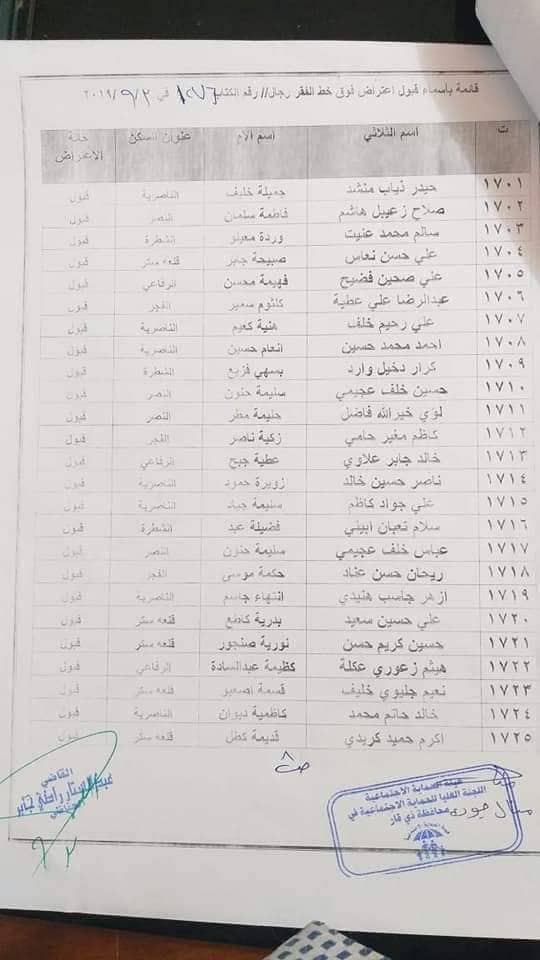 قائمة بأسماء قبول اعتراض فوق خط الفقر رجال// رقم الكتاب في ٢٠١٩/٩/٢
ت اسم الثلاثي اسم الام عنوان السكن حالة الاعتراض
١٧٠١ حيدر ذياب منشد جميلة خليف الناصرية قبول
١٧٠٢ صلاح زعيبل هاشم فاطمة سلمان النصر قبول
١٧٠٣ سالم محمد عنيت وردة معيلو الشطرة قبول
١٧٠٤ علي حسن نعاس صبيحة جابر قلعه سكر قبول
١٧٠٥ علي صحين فضيح فهيمة محسن الرفاعي قبول
١٧٠٦ عبدالرضا علي عطية كلثوم سعير الفجر قبول
١٧٠٧ علي رحيم خلف هنية كعيم الناصرية قبول
١٧٠٨ احمد محمد حسين انعام حسين الناصرية قبول
١٧٠٩ كرار دخيل وارد بسهي فزيع الشطرة قبول
١٧١٠ حسين خلف عجيمي سليمة حنون النصر قبول
١٧١١ لؤي خيرالله فاضل حليمة مطر النصر قبول
١٧١٢ كاظم مغير حامي زكية ناصر الفجر قبول
١٧١٣ خالد جابر علاوي عطية جبح الرفاعي قبول
١٧١٤ ناصر حسين خالد زويرة حمود الناصرية قبول
١٧١٥ علي جواد كاظم سليمة جياد الناصرية قبول
١٧١٦ سلام تعبان ابيني فضيلة عبد الشطرة قبول
١٧١٧ عباس خلف عجيمي سليمة حنون النصر قبول
١٧١٨ ريحان حسن عناد حكمة موسى الفجر قبول
١٧١٩ ازهر جاسب هنيدي انتهاء جاسم الناصرية قبول
١٧٢٠ علي حسين سعيد بدرية كاطع قلعه سكر قبول
١٧٢١ حسين كريم حسن نورية صنجور قلعه سكر قبول
١٧٢٢ هيثم زعوري عكلة كظيمة عبدالسادة الرفاعي قبول
١٧٢٣ نعيم جليوي خليف قسمة اصعيو قلعه سكر قبول
١٧٢٤ خالد حاتم محمد كاظمية ديوان الناصرية قبول
١٧٢٥ اكرم حميد كريدي قديمة كطل قلعه سكر قبول
القاضي
هيئة الحماية الاجتماعية
اللجنة العليا للحماية الاجتماعية في
محافظة ذي قار